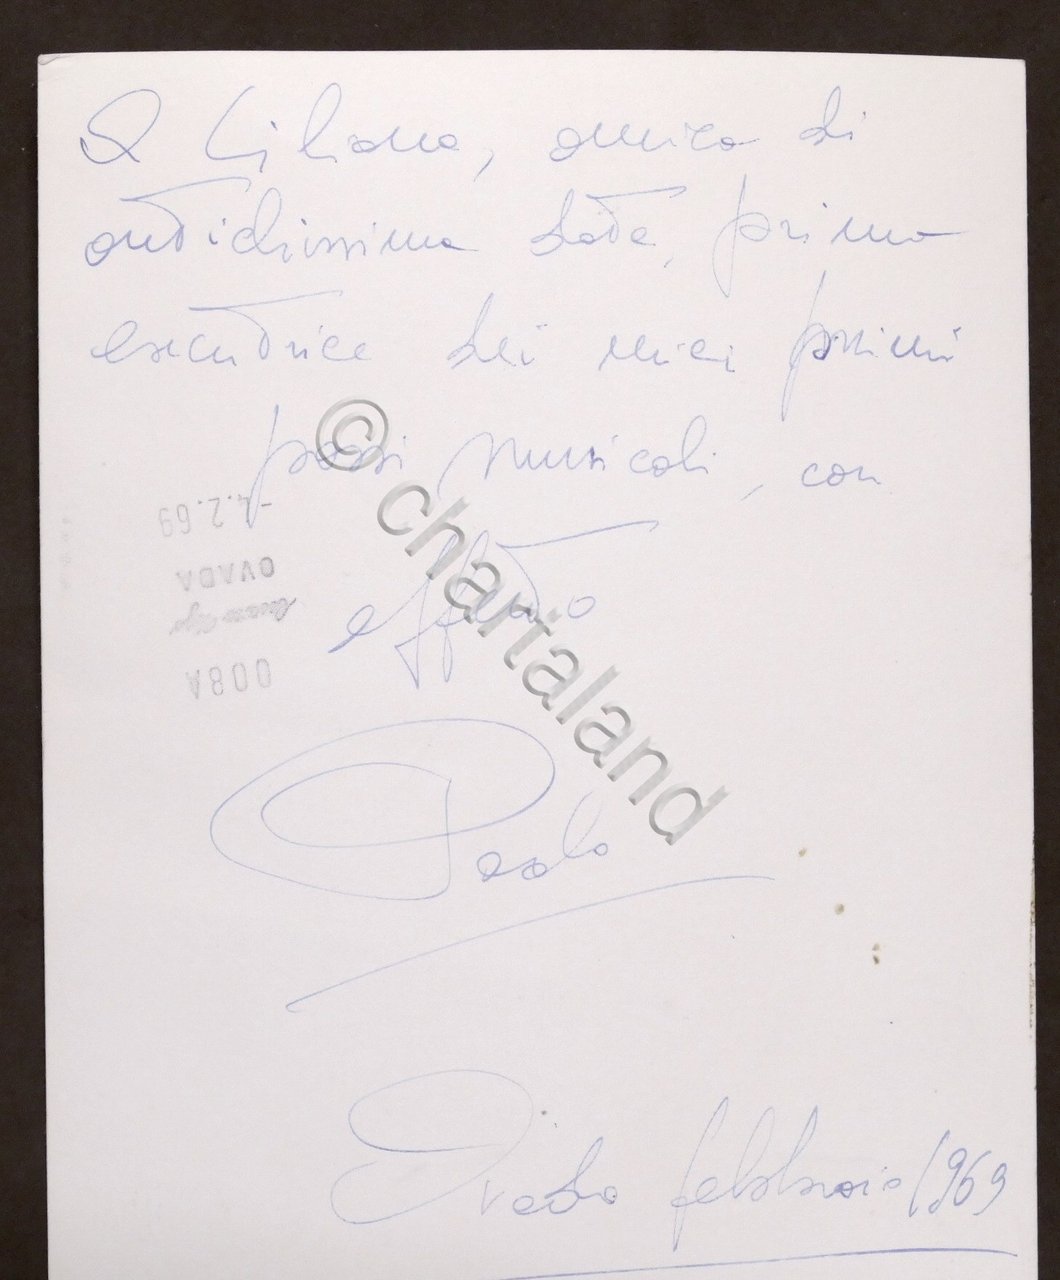 A Liliana, amica di
antichissima data, prima
esecutrice dei miei primi
passi musicali, con
affetto
Paolo
Ovada febbraio 1969
-4.2.69
OVADA
008A
© chartaland